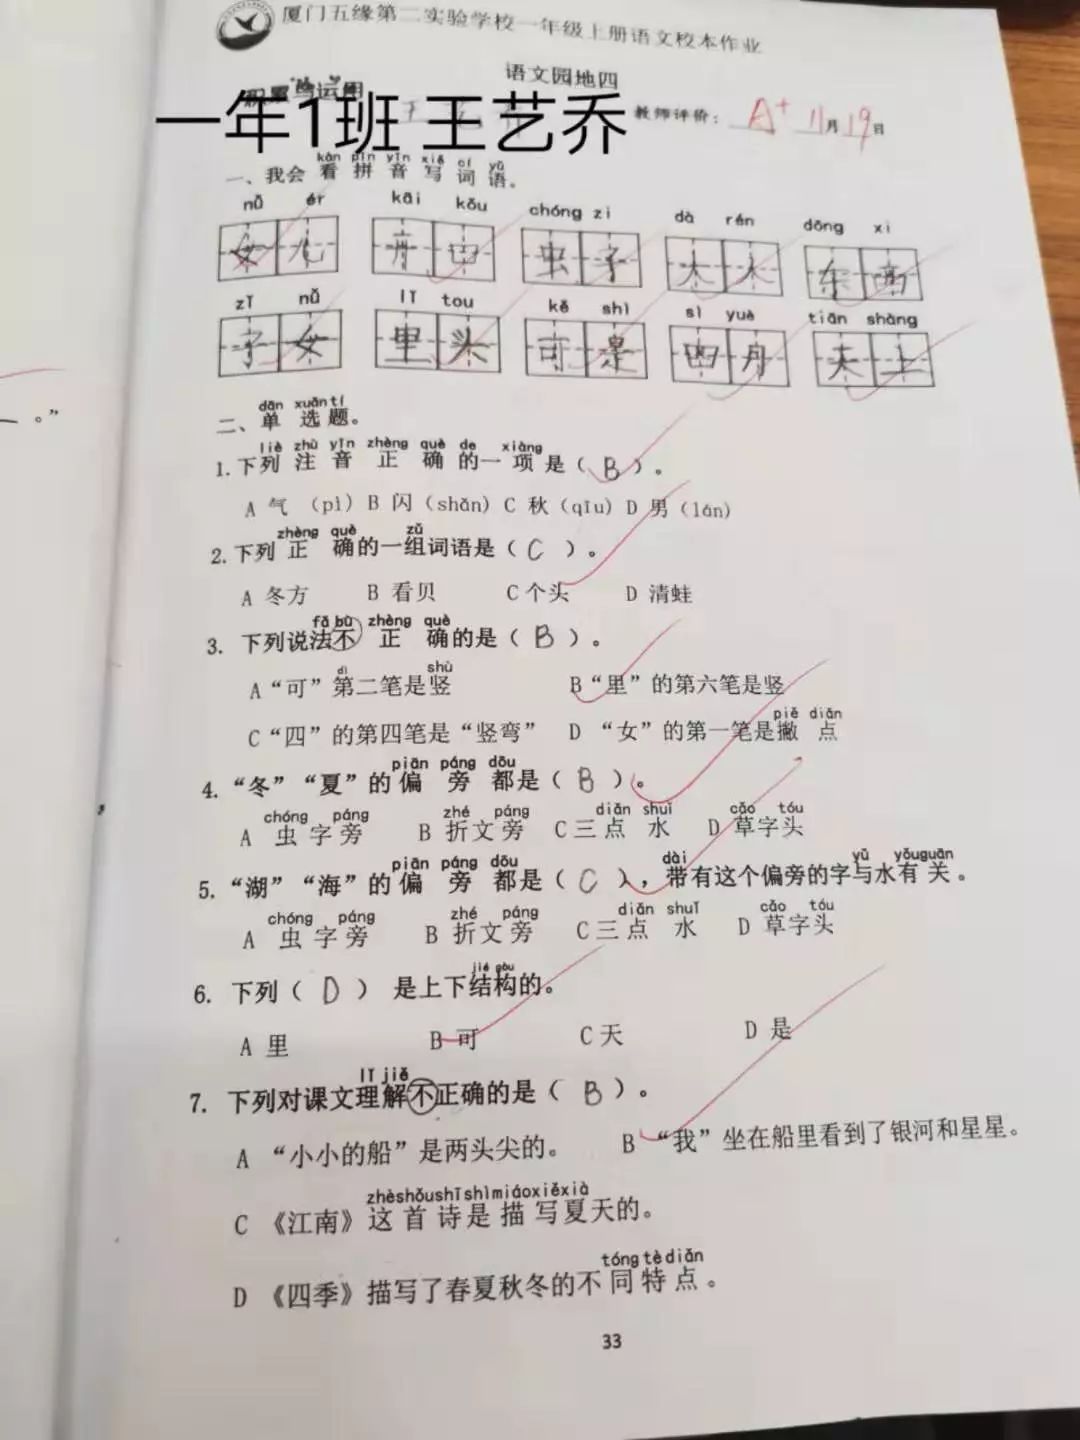 厦门五缘第二实验学校一年级上册语文校本作业
语文园地四
积累与运用
一年1班 王艺乔
教师评价： A+ 11月19日
kàn pīn yīn xiě cí yǔ
一、我会看拼音写词语。
nǚ ér kāi kǒu chóng zi dà rén dōng xi
女儿 开口 虫子 大人 东西
zǐ nǚ lǐ tou kě shì sì yuè tiān shàng
子女 里头 可是 四月 天上
dān xuǎn tí
二、单选题。
liè zhù yīn zhèng què de xiàng
1.下列注音正确的一项是（ B ）。
A 气（pì）B 闪（shǎn）C 秋（qīu）D 男（lán）
zhèng què zǔ
2.下列正确的一组词语是（ C ）。
A 冬方 B 看贝 C 个头 D 清蛙
fǎ bù zhèng què
3. 下列说法不正确的是（ B ）。
dì shù
A“可”第二笔是竖 B“里”的第六笔是竖
piě diǎn
C“四”的第四笔是“竖弯” D “女”的第一笔是撇点
piān páng dōu
4.“冬”“夏”的偏旁都是（ B ）。
chóng páng zhé páng diǎn shuǐ cǎo tóu
A 虫字旁 B 折文旁 C 三点水 D 草字头
piān páng dōu dài yǔ yǒuguān
5.“湖”“海”的偏旁都是（ C ），带有这个偏旁的字与水有关。
chóng páng zhé páng diǎn shuǐ cǎo tóu
A 虫字旁 B 折文旁 C 三点水 D 草字头
jié gòu
6. 下列（ D ）是上下结构的。
A 里 B 可 C 天 D 是
lǐ jiě
7. 下列对课文理解不正确的是（ B ）。
A “小小的船”是两头尖的。 B “我”坐在船里看到了银河和星星。
zhèshǒushīshìmiáoxiěxià
C 《江南》这首诗是描写夏天的。
tóng tè diǎn
D 《四季》描写了春夏秋冬的不同特点。
33
。”